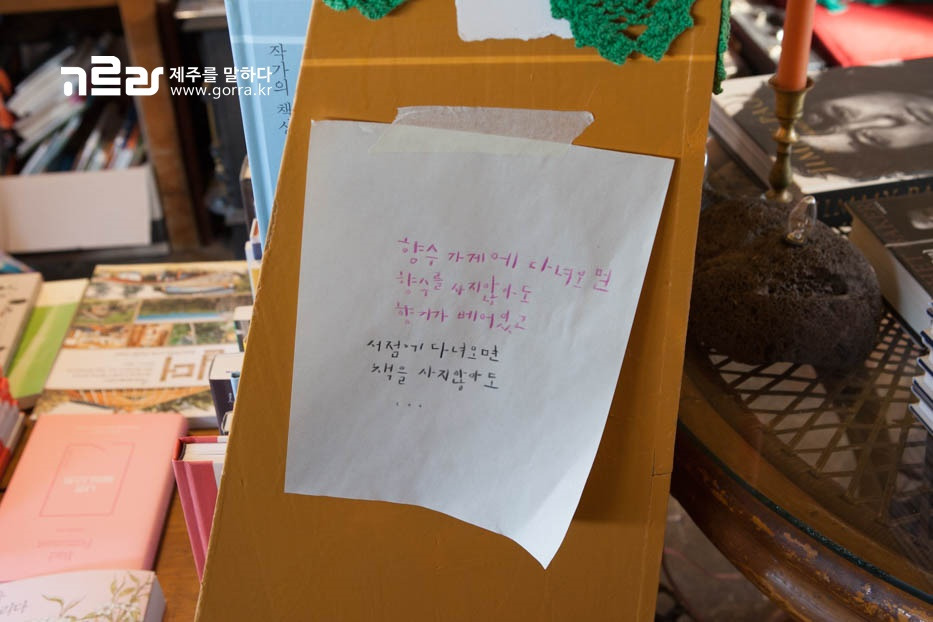 제주를 말하다
www.gorra.kr
작가의 책
향수 가게에 다녀오면
향수를 사지않아도
향기가 베어있고
서점에 다녀오면
책을 사지않아도
...